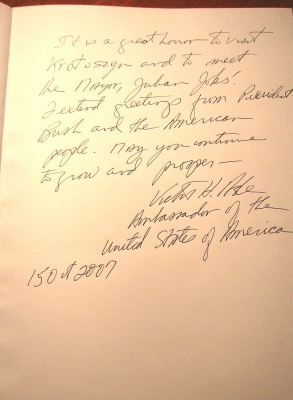 It is a great honor to visit
Krotoszyn and to meet
the Mayor, Julian Jokś!
I extend greetings from President
Bush and the American
people. May you continue
to grow and prosper—
Victor H. Ashe
Ambassador of the
United States of America
15 Oct 2007